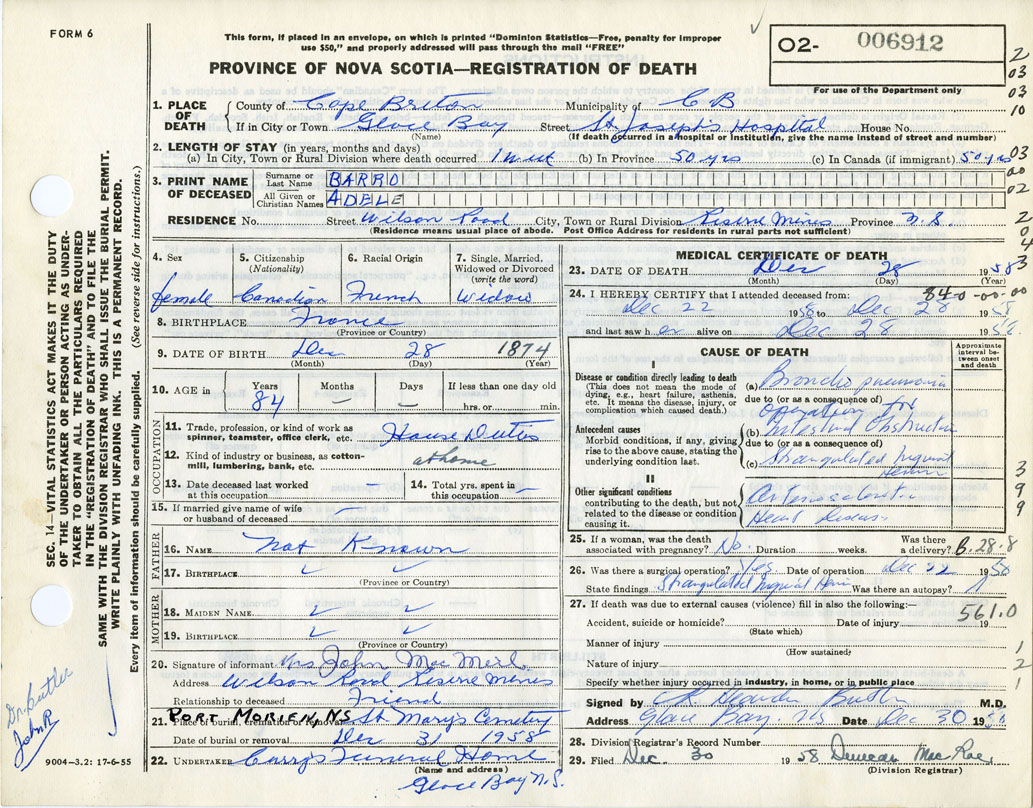 FORM 6
This form, if placed in an envelope, on which is printed "Dominion Statistics—Free, penalty for improper
use $50," and properly addressed will pass through the mail "FREE"
O2- 006912
PROVINCE OF NOVA SCOTIA—REGISTRATION OF DEATH
For use of the Department only
1. PLACE OF DEATH
County of Cape Breton Municipality of C B
If in City or Town Glace Bay Street St Joseph's Hospital House No.
(Name) (If death occurred in a hospital or institution, give the name instead of street and number)
2. LENGTH OF STAY (in years, months and days)
(a) In City, Town or Rural Division where death occurred 1 week (b) In Province 50 yrs (c) In Canada (if immigrant) 50 yrs
3. PRINT NAME OF DECEASED
Surname or Last Name BARRO
All Given or Christian Names ADELE
RESIDENCE No. Street Wilson Road City, Town or Rural Division Reserve Mines Province N.S.
(Residence means usual place of abode. Post Office Address for residents in rural parts not sufficient)
4. Sex
female
5. Citizenship
(Nationality)
Canadian
6. Racial Origin
French
7. Single, Married,
Widowed or Divorced
(write the word)
Widow
8. BIRTHPLACE France
(Province or Country)
9. DATE OF BIRTH Dec 28 1874
(Month) (Day) (Year)
10. AGE in
Years Months Days If less than one day old
84 — — hrs. or min.
OCCUPATION
11. Trade, profession, or kind of work as
spinner, teamster, office clerk, etc. House Duties
12. Kind of industry or business, as cotton-
mill, lumbering, bank, etc. at home
13. Date deceased last worked
at this occupation —
14. Total yrs. spent in
this occupation —
15. If married give name of wife
or husband of deceased —
FATHER
16. NAME Not Known
17. BIRTHPLACE ✓ ✓
(Province or Country)
MOTHER
18. MAIDEN NAME ✓ ✓
19. BIRTHPLACE ✓ ✓
(Province or Country)
20. Signature of informant Mrs John Mac
Address Wilson Road Reserve Mines
Relationship to deceased Friend
21. Place of burial, cremation or removal PORT MORIEN, NS St Mary's Cemetery
Date of burial or removal Dec 31 1958
22. UNDERTAKER Curry's Funeral Home
(Name and address)
Glace Bay N.S.
MEDICAL CERTIFICATE OF DEATH
23. DATE OF DEATH Dec 28 1958
(Month) (Day) (Year)
84-0-00-00
24. I HEREBY CERTIFY that I attended deceased from:
Dec 22 1958 to Dec 28 1958
and last saw h er alive on Dec 28 1958.
CAUSE OF DEATH
Approximate
interval be-
tween onset
and death
I
Disease or condition directly leading to death
(This does not mean the mode of
dying, e.g., heart failure, asthenia,
etc. It means the disease, injury, or
complication which caused death.)
(a) Broncho pneumonia
due to (or as a consequence of)
operation for
Antecedent causes
Morbid conditions, if any, giving
rise to the above cause, stating the
underlying condition last.
(b) Intestinal Obstruction
due to (or as a consequence of)
(c) Strangulated Inguinal
Hernia
II
Other significant conditions
contributing to the death, but not
related to the disease or condition
causing it.
Arteriosclerotic
Heart Disease
25. If a woman, was the death
associated with pregnancy? No. Duration weeks. Was there
a delivery? B.28.8
26. Was there a surgical operation? Yes Date of operation Dec 22 1958
State findings Strangulated Inguinal Hernia Was there an autopsy?
27. If death was due to external causes (violence) fill in also the following:—
561.0
Accident, suicide or homicide? Date of injury 19
(State which)
Manner of injury
(How sustained)
Nature of injury
Specify whether injury occurred in industry, in home, or in public place
Signed by Butler M.D.
Address Glace Bay. NS Date Dec 30 1958
28. Division Registrar's Record Number
29. Filed Dec. 30 1958 Duncan Mac Rae,
(Division Registrar)
SEC. 14—VITAL STATISTICS ACT MAKES IT THE DUTY
OF THE UNDERTAKER OR PERSON ACTING AS UNDER-
TAKER TO OBTAIN ALL THE PARTICULARS REQUIRED
IN THE "REGISTRATION OF DEATH" AND TO FILE THE
SAME WITH THE DIVISION REGISTRAR WHO SHALL ISSUE THE BURIAL PERMIT.
WRITE PLAINLY WITH UNFADING INK. THIS IS A PERMANENT RECORD.
Every item of information should be carefully supplied. (See reverse side for instructions.)
Dr. Butler
John R
9004—3.2: 17-6-55
2
03
03
10
03
00
02
2
0
4
3
3
9
9
1
2
1